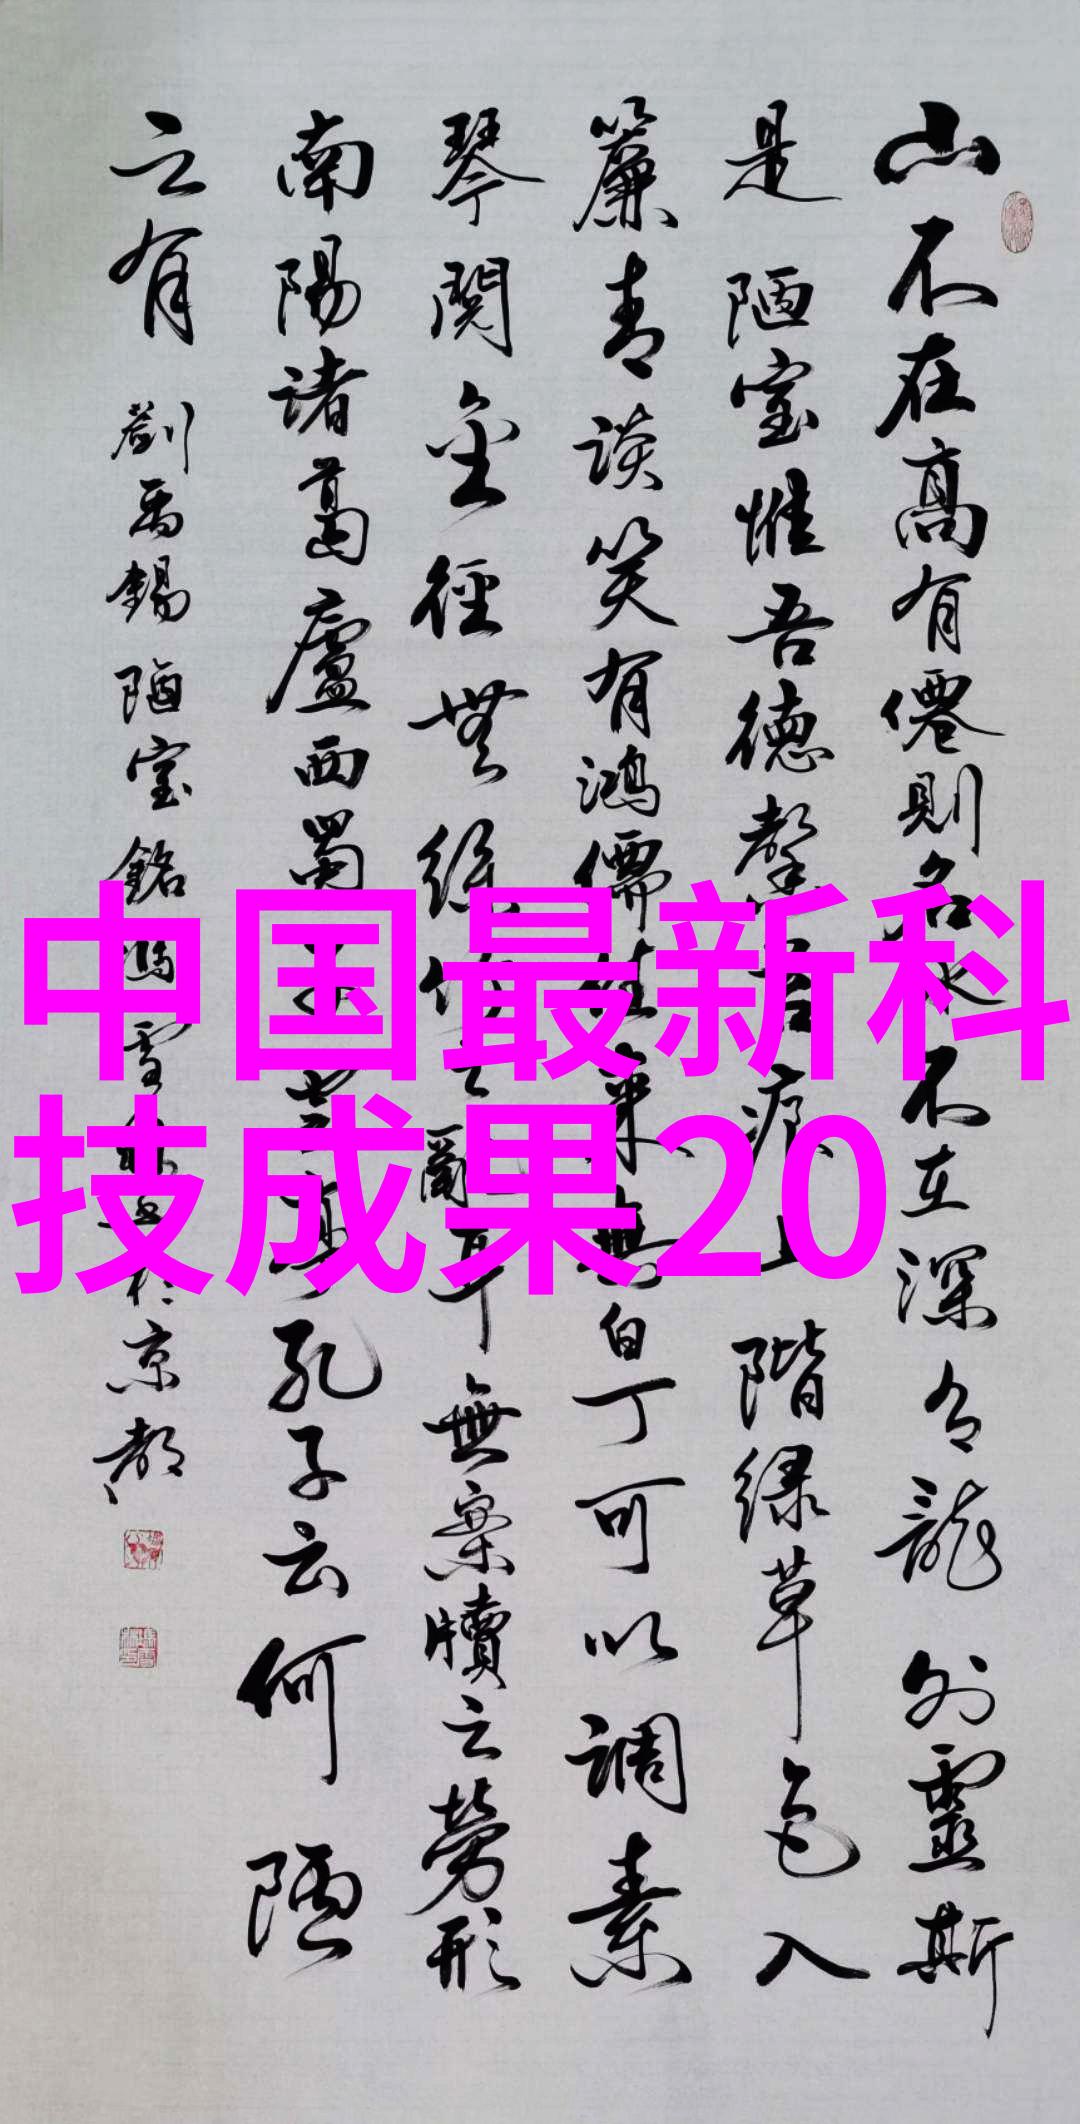 山不在高有僊則名水不在深有龍則靈斯
是陋室惟吾德馨苔痕上階緑草色入
簾青談笑有鴻儒往来無白丁可以調素
琴閱金徑無絲竹之亂耳無案牘之勞形
南陽諸葛廬西蜀子雲亭孔子云何陋
之有 劉禹錫陋室銘馮雪書於京都
中国最新科
技成果20